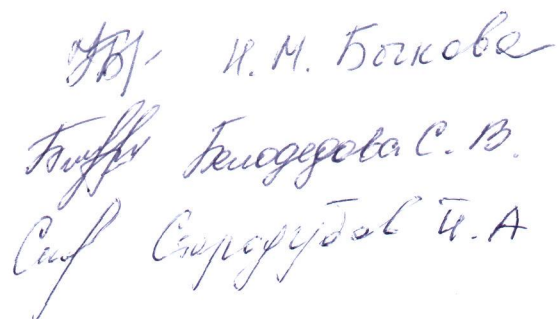 Н. М. Быкова
Белодедова С. В.
Стародубов И. А